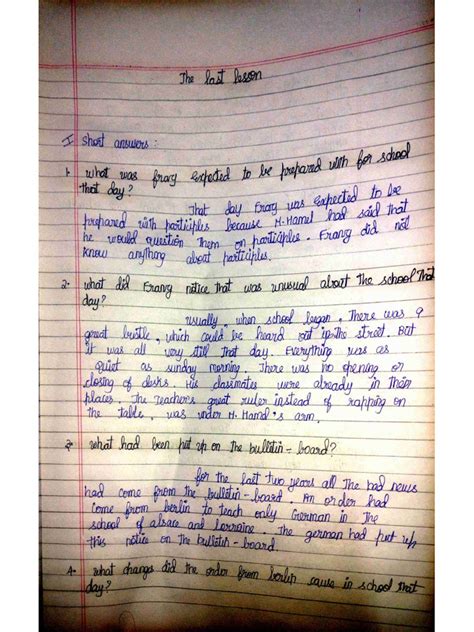 The last lesson
I short answers :
1. what was franz expected to be prepared with for school
that day?
That day franz was expected to be
prepared with participles because M. Hamel had said that
he would question them on participles. Franz did not
know anything about participles.
2. what did Franz notice that was unusual about the school that
day?
usually, when school began, there was a
great bustle, which could be heard out in the street. But
it was all very still that day. Everything was as
quiet as sunday morning. There was no opening or
closing of desks. His classmates were already in their
places. The teacher's great ruler instead of rapping on
the table, was under M. Hamel's arm.
3. what had been put up on the bulletin-board?
for the last two years all the bad news
had come from the bulletin-board. An order had
come from berlin to teach only German in the
school of alsace and lorraine. The german had put up
this notice on the bulletin-board.
4. what changes did the order from berlin cause in school that
day?